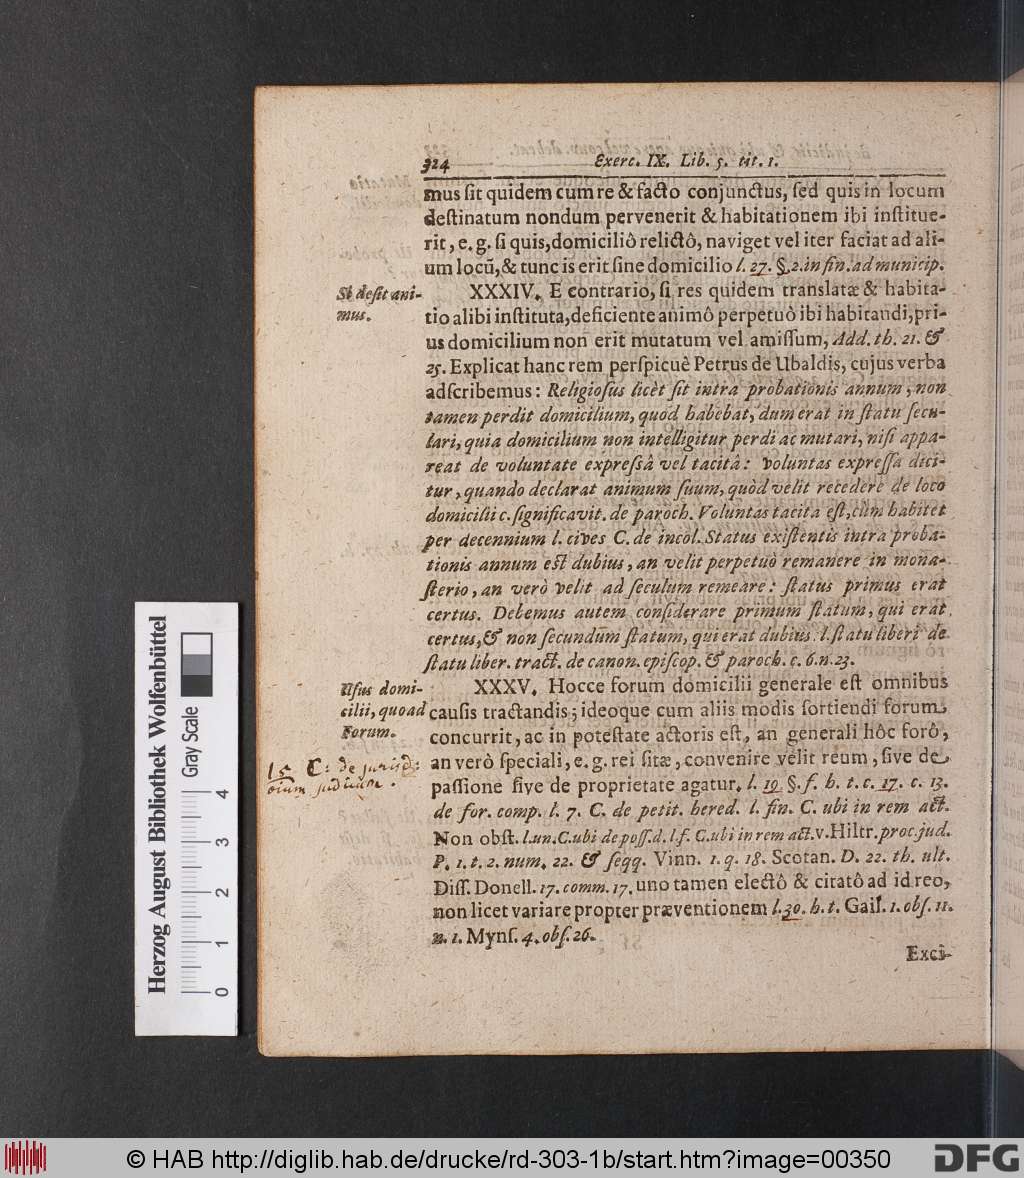 324 Exerc. IX. Lib. 5. tit. 1.
mus ſit quidem cum re & facto conjunctus, ſed quis in locum
deſtinatum nondum pervenerit & habitationem ibi inſtitue-
rit, e. g. ſi quis, domiciliô relictô, naviget vel iter faciat ad ali-
um locũ, & tunc is erit ſine domicilio l. 27. §. 2. in fin. ad municip.
Si deſit ani-
mus.
XXXIV. E contrario, ſi res quidem translatæ & habita-
tio alibi inſtituta, deficiente animô perpetuò ibi habitandi, pri-
us domicilium non erit mutatum vel amiſſum, Add. th. 21. &
25. Explicat hanc rem perſpicuè Petrus de Ubaldis, cujus verba
adſcribemus: Religioſus licèt ſit intra probationis annum, non
tamen perdit domicilium, quod habebat, dum erat in ſtatu ſecu-
lari, quia domicilium non intelligitur perdi ac mutari, niſi appa-
reat de voluntate expreſsâ vel tacitâ: Voluntas expreſſa dici-
tur, quando declarat animum ſuum, quòd velit recedere de loco
domicilii c. ſignificavit. de paroch. Voluntas tacita eſt, cùm habitet
per decennium l. cives C. de incol. Status exiſtentis intra proba-
tionis annum eſt dubius, an velit perpetuò remanere in mona-
ſterio, an verò velit ad ſeculum remeare: ſtatus primus erat
certus. Debemus autem conſiderare primum ſtatum, qui erat
certus, & non ſecundum ſtatum, qui erat dubius. l. ſtatu liberi de
ſtatu liber. tract. de canon. epiſcop. & paroch. c. 6. n. 23.
Uſus domi-
cilii, quoad
Forum.
XXXV. Hocce forum domicilii generale eſt omnibus
cauſis tractandis; ideoque cum aliis modis ſortiendi forum
concurrit, ac in poteſtate actoris eſt, an generali hôc forô,
an verò ſpeciali, e. g. rei ſitæ, convenire velit reum, ſive de
paſſione ſive de proprietate agatur. l. 19. §. f. h. t. c. 17. c. 13.
l 5. C: de jurisd:
omium judicum.
de for. comp. l. 7. C. de petit. hered. l. fin. C. ubi in rem act.
Non obſt. l. un. C. ubi de poſſ. d. l. f. C. ubi in rem act. v. Hiltr. proc. jud.
P. 1. t. 2. num. 22. & ſeqq. Vinn. 1. q. 18. Scotan. D. 22. th. ult.
Diſſ. Donell. 17. comm. 17. uno tamen electô & citatô ad id reo,
non licet variare propter præventionem l. 30. h. t. Gail. 1. obſ. 11.
n. 1. Mynſ. 4. obſ. 26.
Exci-
Herzog August Bibliothek Wolfenbüttel
Gray Scale
0 1 2 3 4
© HAB http://diglib.hab.de/drucke/rd-303-1b/start.htm?image=00350
DFG